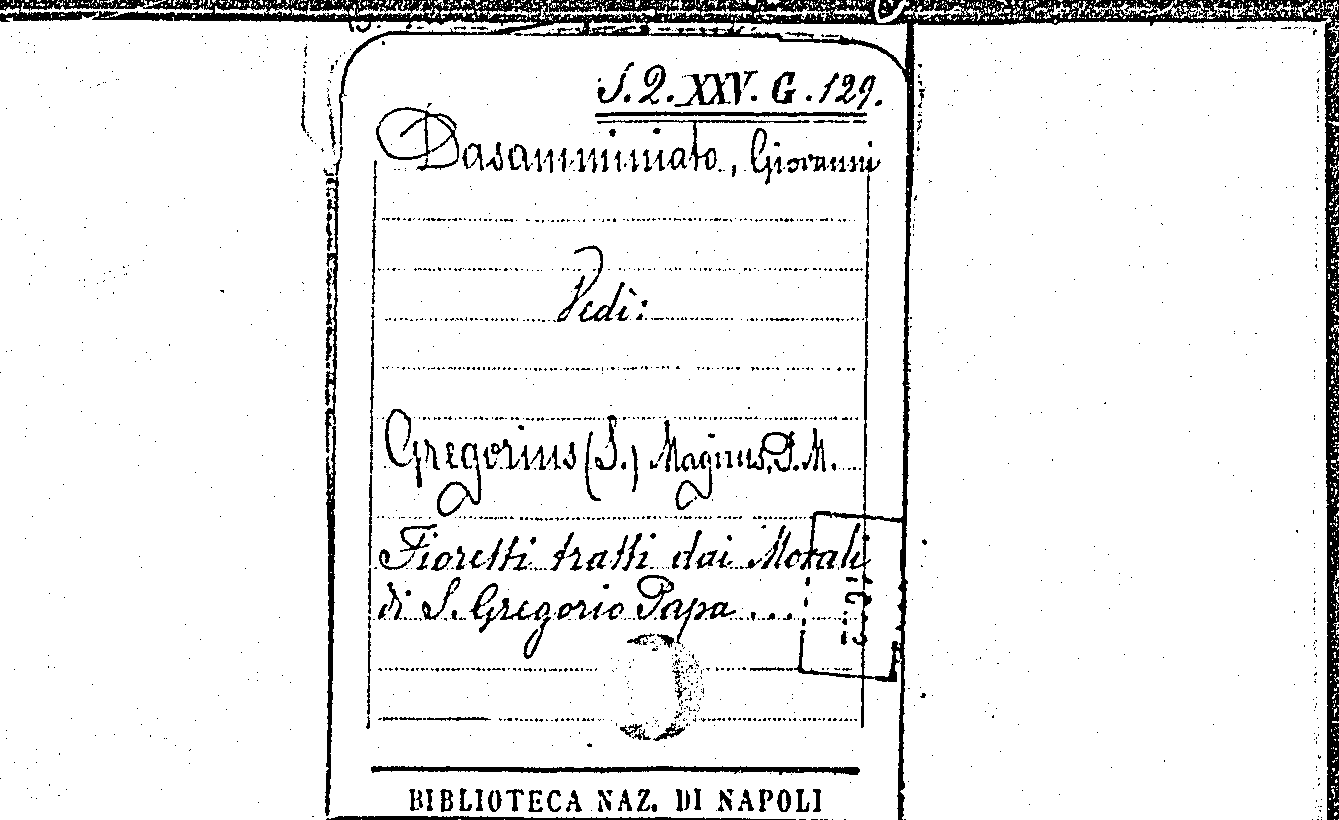 S. Q. XXV. G. 129.
Dasamminiato, Giovanni
Vedi:
Gregorius (S.) Magnus, P. M.
Fioretti tratti dai Morali
di S. Gregorio Papa ...
BIBLIOTECA NAZ. DI NAPOLI